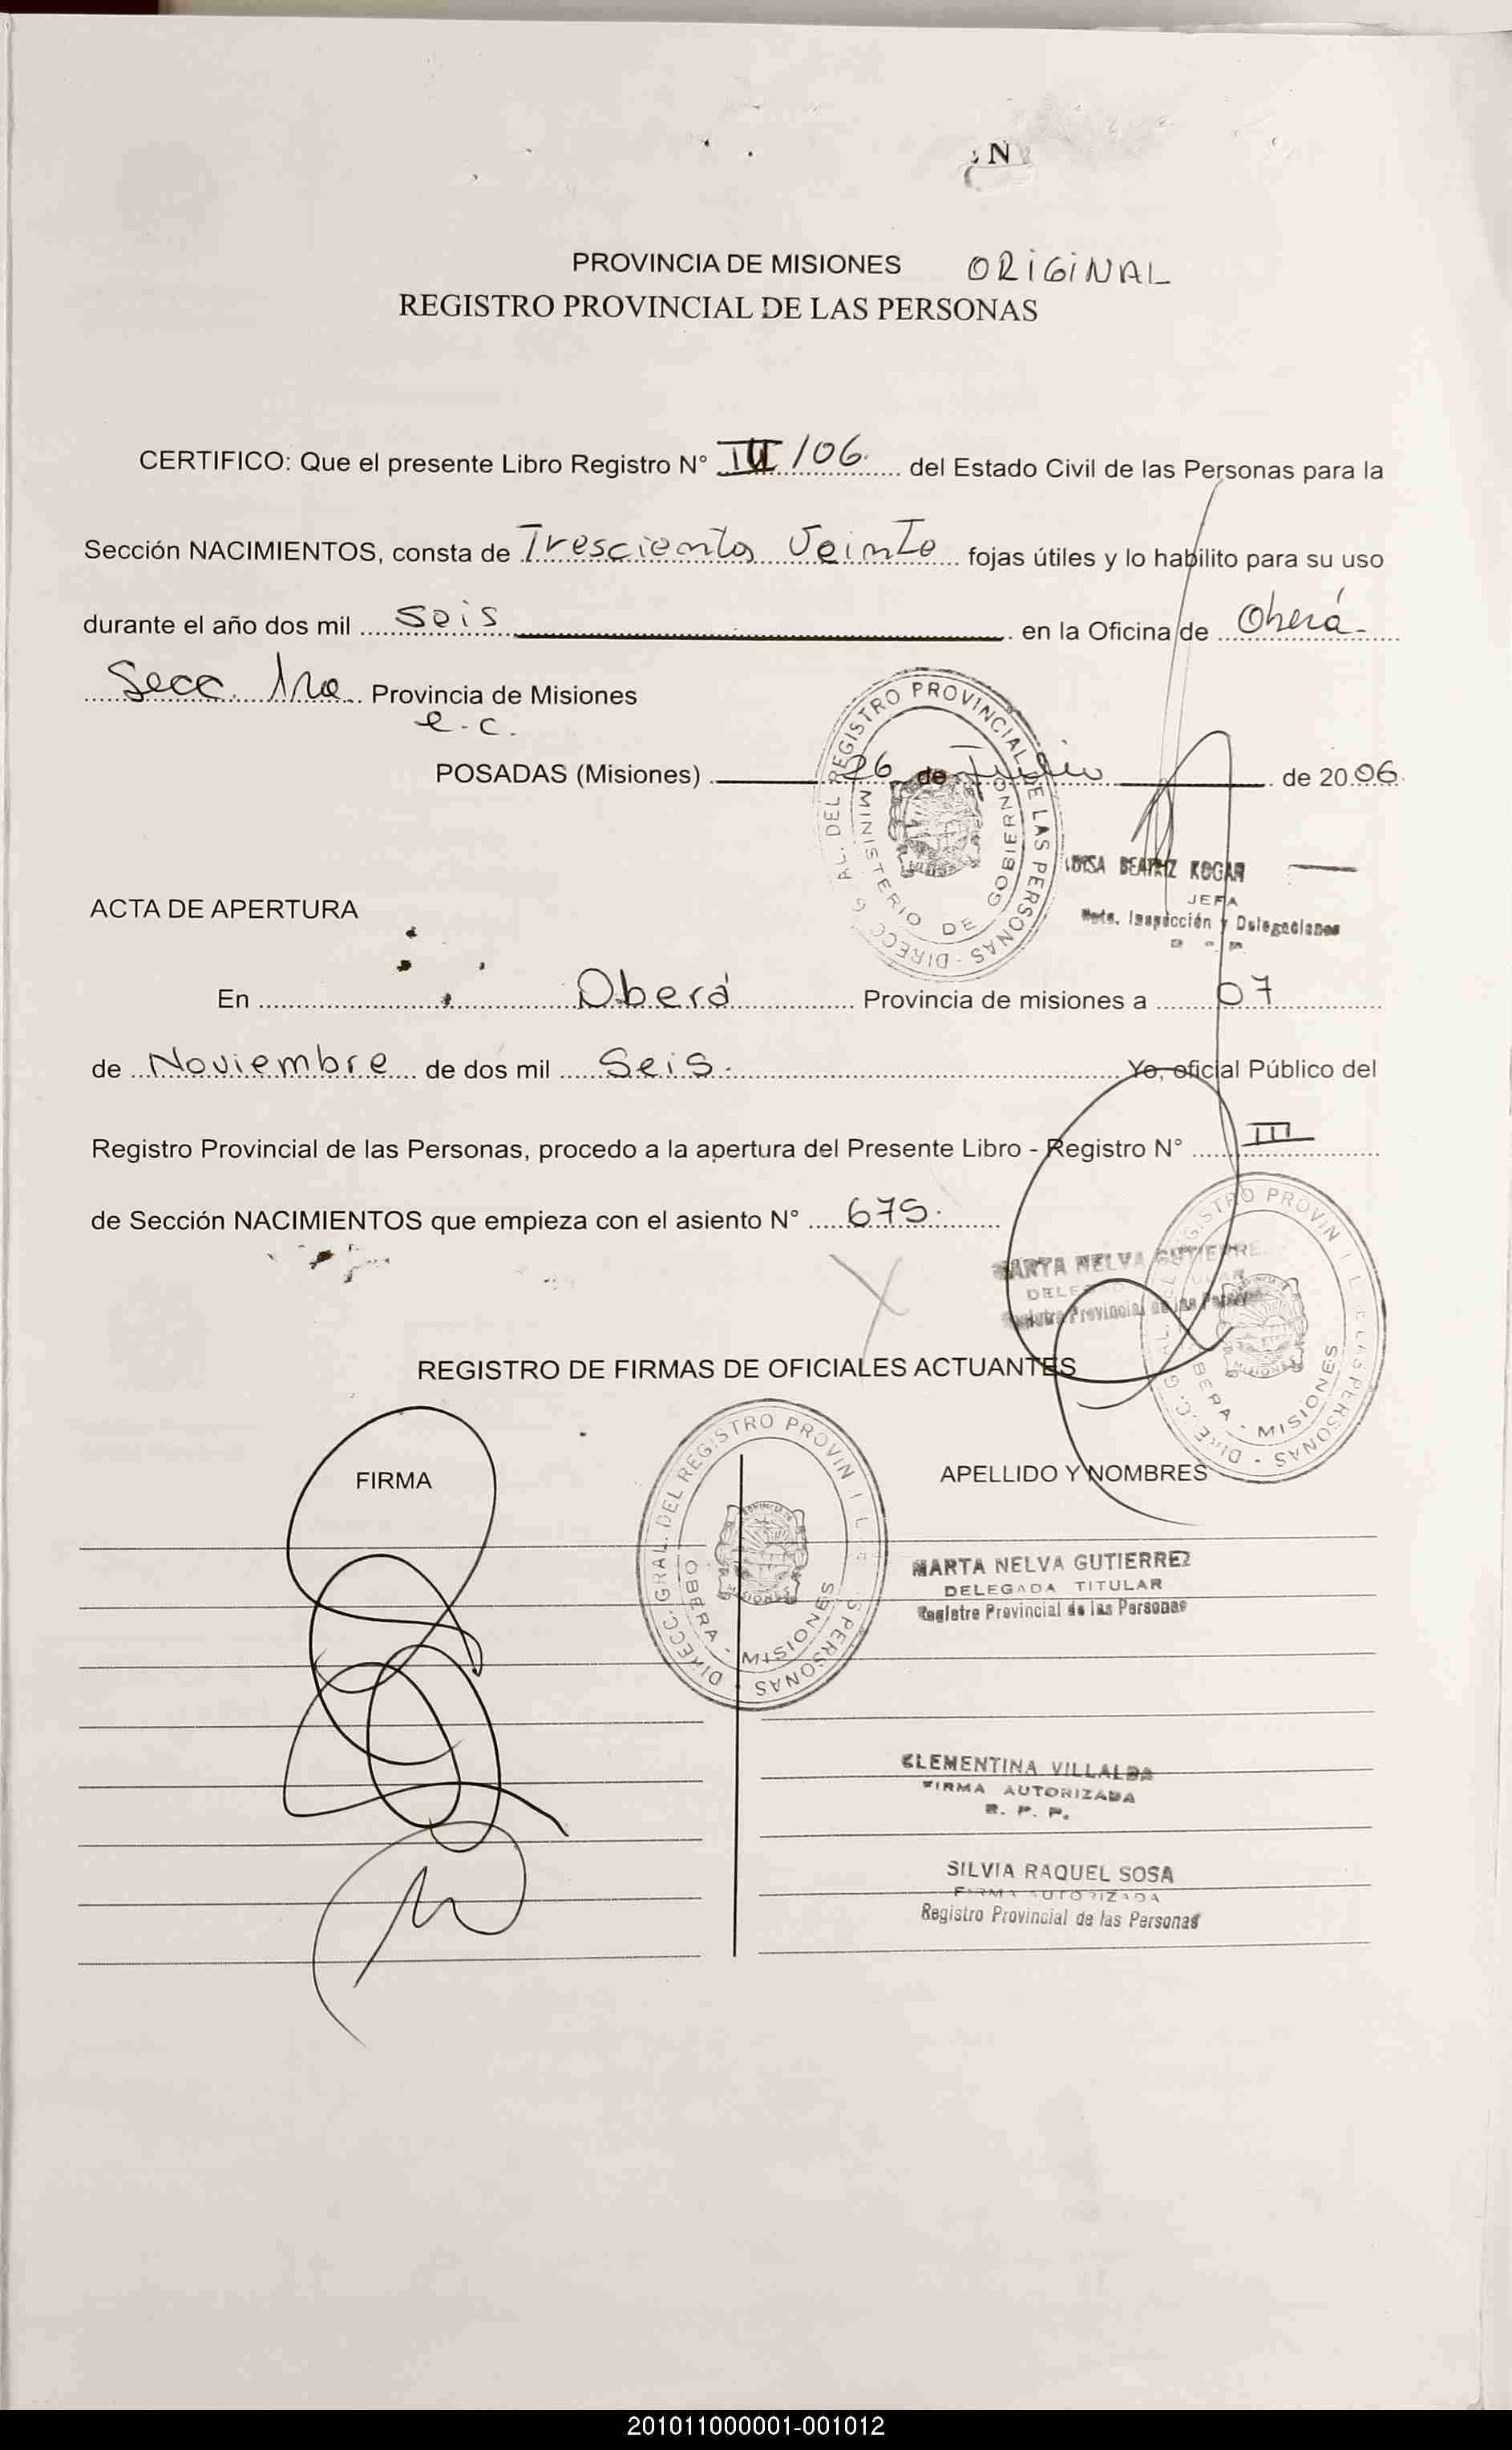 N
PROVINCIA DE MISIONES ORIGINAL
REGISTRO PROVINCIAL DE LAS PERSONAS
CERTIFICO: Que el presente Libro Registro N° III /06. del Estado Civil de las Personas para la
Sección NACIMIENTOS, consta de Trescientos Veinte fojas útiles y lo habilito para su uso
durante el año dos mil seis en la Oficina de Oberá-
Secc. 1ra Provincia de Misiones
e.c.
POSADAS (Misiones) 26 de Julio de 2006.
REGISTRO PROVINCIAL DE LAS PERSONAS - DIRECC. G AL. DEL
MINISTERIO DE GOBIERNO
BEATRIZ KOGAR
JEFA
Inspección y Delegaciones
ACTA DE APERTURA
En Oberá Provincia de misiones a 07
de Noviembre de dos mil Seis. Yo, oficial Público del
Registro Provincial de las Personas, procedo a la apertura del Presente Libro - Registro N° III
de Sección NACIMIENTOS que empieza con el asiento N° 675.
MARTA NELVA GUTIERRE
Registro Provincial de las Personas
OBERA - MISIONES
REGISTRO DE FIRMAS DE OFICIALES ACTUANTES
FIRMA APELLIDO Y NOMBRES
DIRECC. GRAL. DEL REGISTRO PROVIN I L E S PERSONAS
OBERA - MISIONES
MARTA NELVA GUTIERREZ
DELEGADA TITULAR
Registro Provincial de las Personas
CLEMENTINA VILLALBA
FIRMA AUTORIZADA
R. P. P.
SILVIA RAQUEL SOSA
FIRMA AUTORIZADA
Registro Provincial de las Personas
201011000001-001012